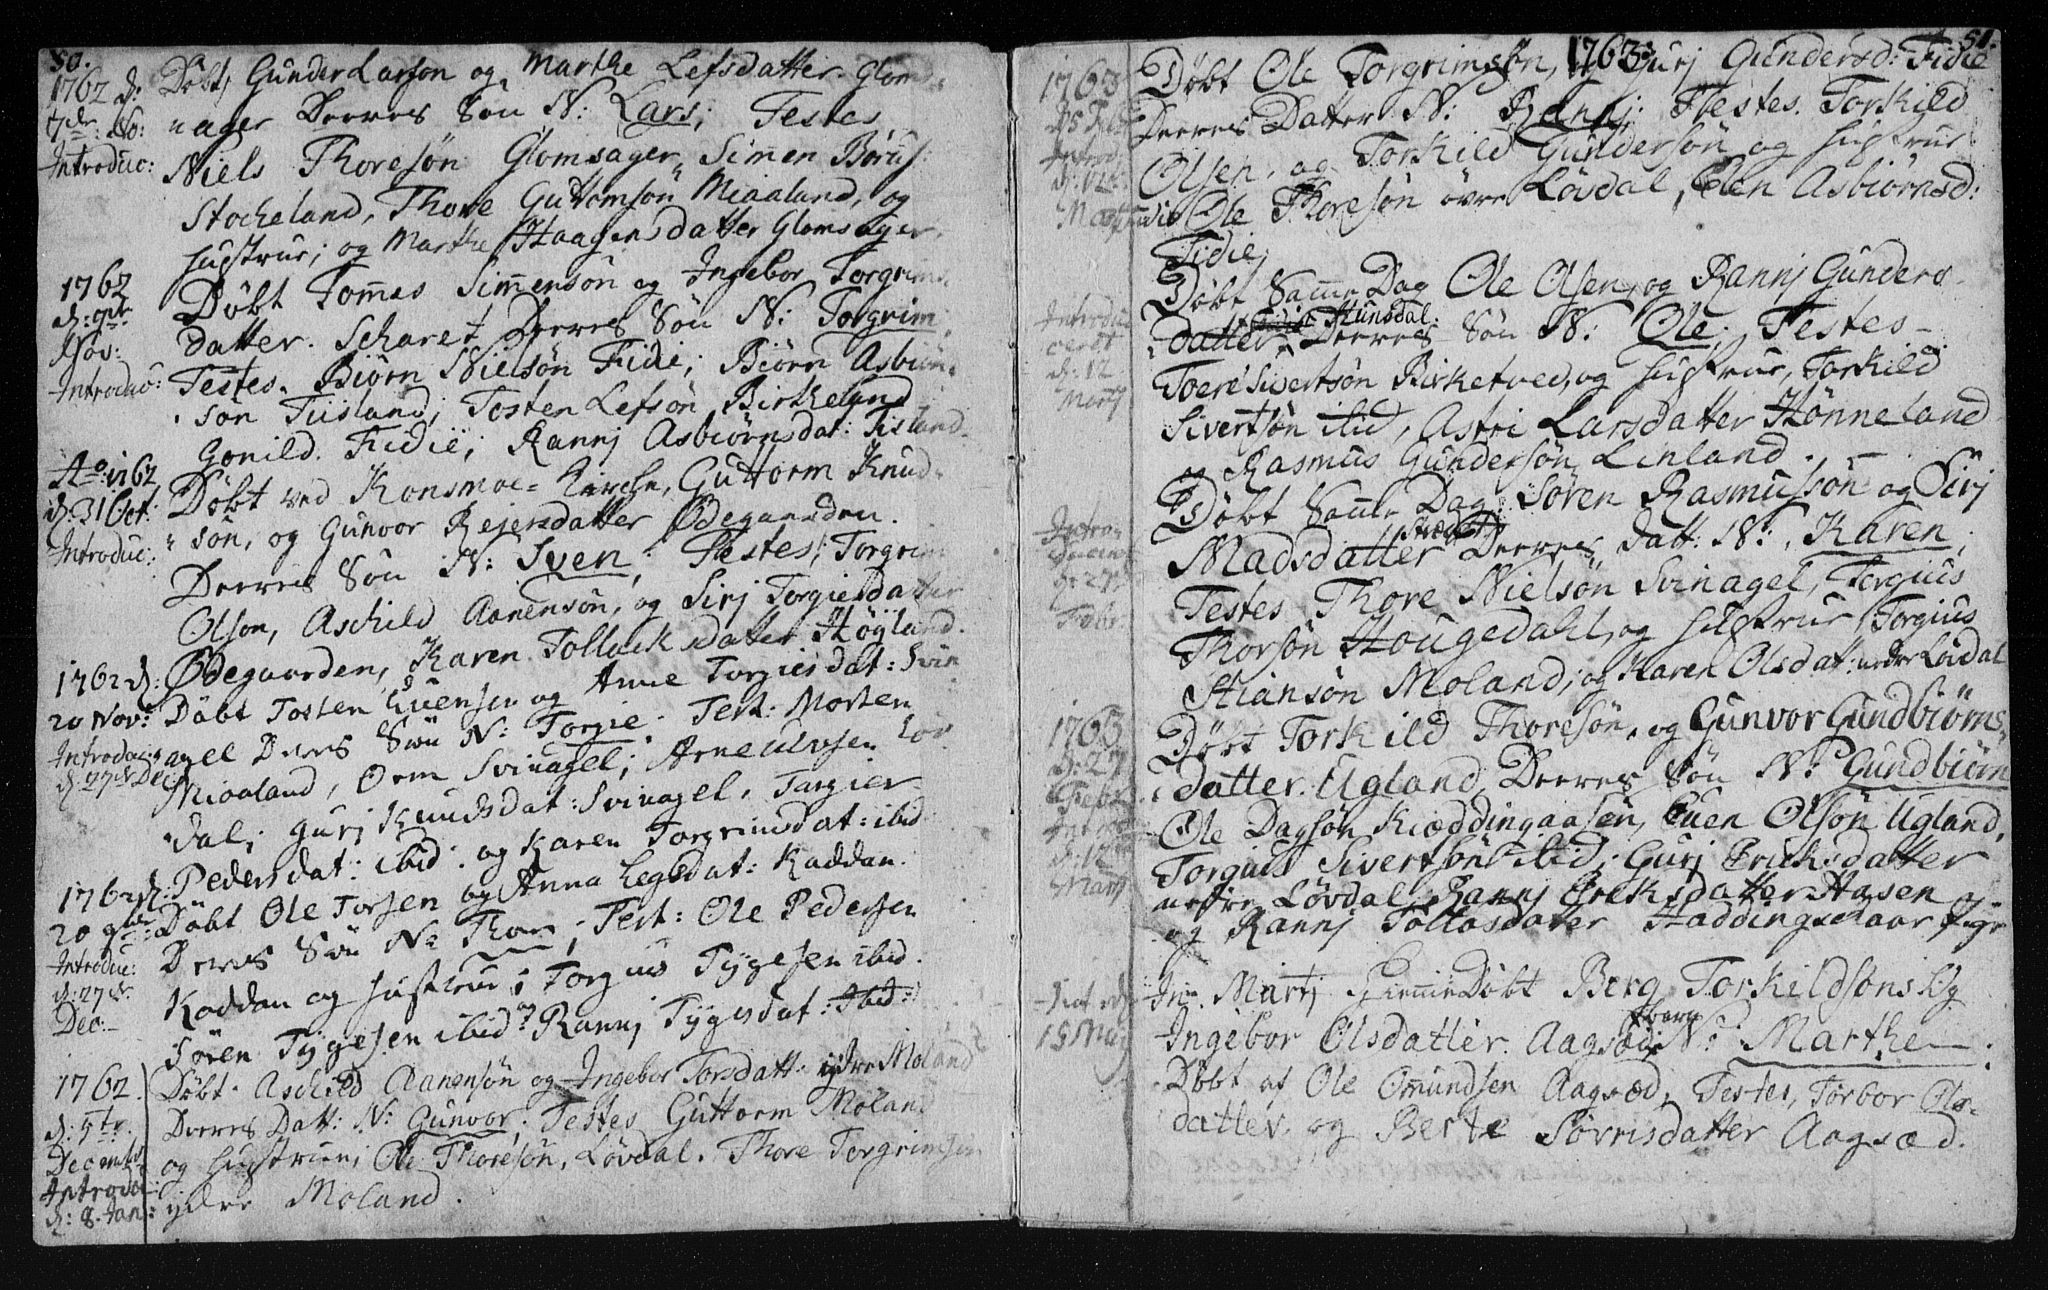 50.
1762 d:
7de No:
Introduc:
Døbt Gunder Larsøn og Marthe Lefsdatter Gloms
ager Deeres Søn N: Lars; Testes
Niels Thoresøn Glomsager, Simen Børufs:
Stocheland, Thore Guttomsøn Miaaland, og
Hustrue; og Marthe Haagensdatter Glomsager.
1762
d: 9de
Nov:
Introduc:
Døbt Tommes Simensøn og Ingebor Torgrims
datter. Scharet Deeres Søn N: Torgrim
Testes. Biørn Nielsøn Fidie; Biørn Asbiørn
søn Tisland; Tosten Lefsøn Birkeland
Gonild Fidie; Rannj Asbiørnsdat: Tisland
Ao: 1762
d: 31 Oct:
Introduc:
Døbt ved Konsmoe Kirche, Guttorm Knud
søn, og Gunvor Rejersdatter Ødegaarden.
Deeres Søn N: Sven; Testes; Torgrim
Olsøn, Aschild Aanensøn, og Sirj Torgiersdatter
Ødegaarden, Karen Tollacksdatter Høyland.
1762 d:
20 Nov:
Introduc:
d: 27de Dec:
Døbt Tosten Evensen og Anne Torgiersdat: Svin
agel Deeres Søn N: Torgie. Test: Morten
Miaaland, Orm Svinagel; Arne Olufsen Løv
dal; Gurj Knudsdat: Svinagel, Targier
Pedersdat: ibid: og Karen Torgrimsdat: ibid
1762 d:
20 9br:
Introduc:
d: 27de
Dec:
Døbt Ole Torsen og Anna Legsdat: Kaddan.
Deres Søn N: Thor; Test: Ole Pedersen
Kaddan og Hustrue; Torgius Tygesen ibid.
Søren Tygesen ibid og Rannj Tygesdat: Ibid:
1762.
d: 5te
Decembr
Introdu:
d: 8. Jan:
Døbt Aschild Aanensøn og Ingebor Torsdatt: ydre Moland
Deeres Datt: N: Gunvor; Testes Guttorm Moland
og Hustrue; Ole Thoresøn, Løvdal. Thore Torgrimsen
ydre Moland.
1763. 51.
1763
Introd:
Døbt Ole Torgrimsøn, og Gurj Gundersd: Fidie
Deeres Datter N: Rannj: Testes. Torkild
Olsen, og Torkild Gundersøn og Hustrue
Fidie Ole Thoresøn øvre Løvdal, Elen Asbiørnsd:
Fidie;
Introdu
ceret
d: 12
Martj
Døbt Samme Dag Ole Olsen, og Rannj Gunders
datter Hunsdal. Deeres Søn N: Ole; Testes
Toere Sivertsøn Birketved, og Hustrue, Torkild
Sivertsøn ibid, Astri Larsdatter Hønneland
og Rasmus Gundersøn Linland.
Intro
d: 27
Febr.
Døbt Samme Dag Søren Rasmusøn og Sirj
Madsdatter Deeres Datt: N: Karen;
Testes Thore Nielsøn Svinagel, Torgius
Thorsøn Hougedahl, og Hustrue Torgius
Stiansøn Moland; og Karen Olsdat: nedre Løvdal
1763
d: 27
Febr.
Intro
d: 12
Martj
Døbt Torkild Thoresøn, og Gunvor Gundbiørns
datter. Ugland. Deeres Søn N: Gundbiørn
Ole Dagsøn Kiæddingaasen, Even Olsøn Ugland,
Torgius Sivertsøn ibid; Gurj Ericksdatter
nedre Løvdal, Rannj Ericksdatter Aasen
og Rannj Tollasdatter Haddingskaar Pige
15 Maj
In Martj Hiemme Døbt Berg Torkildsøns og
Ingebor Olsdatter. Aagsæd Barn N: Marthe.
Døbt af Ole Omundsen Aagsæd, Testes, Torbor Ols-
datter og Berte Sørrisdatter Aagsæd.